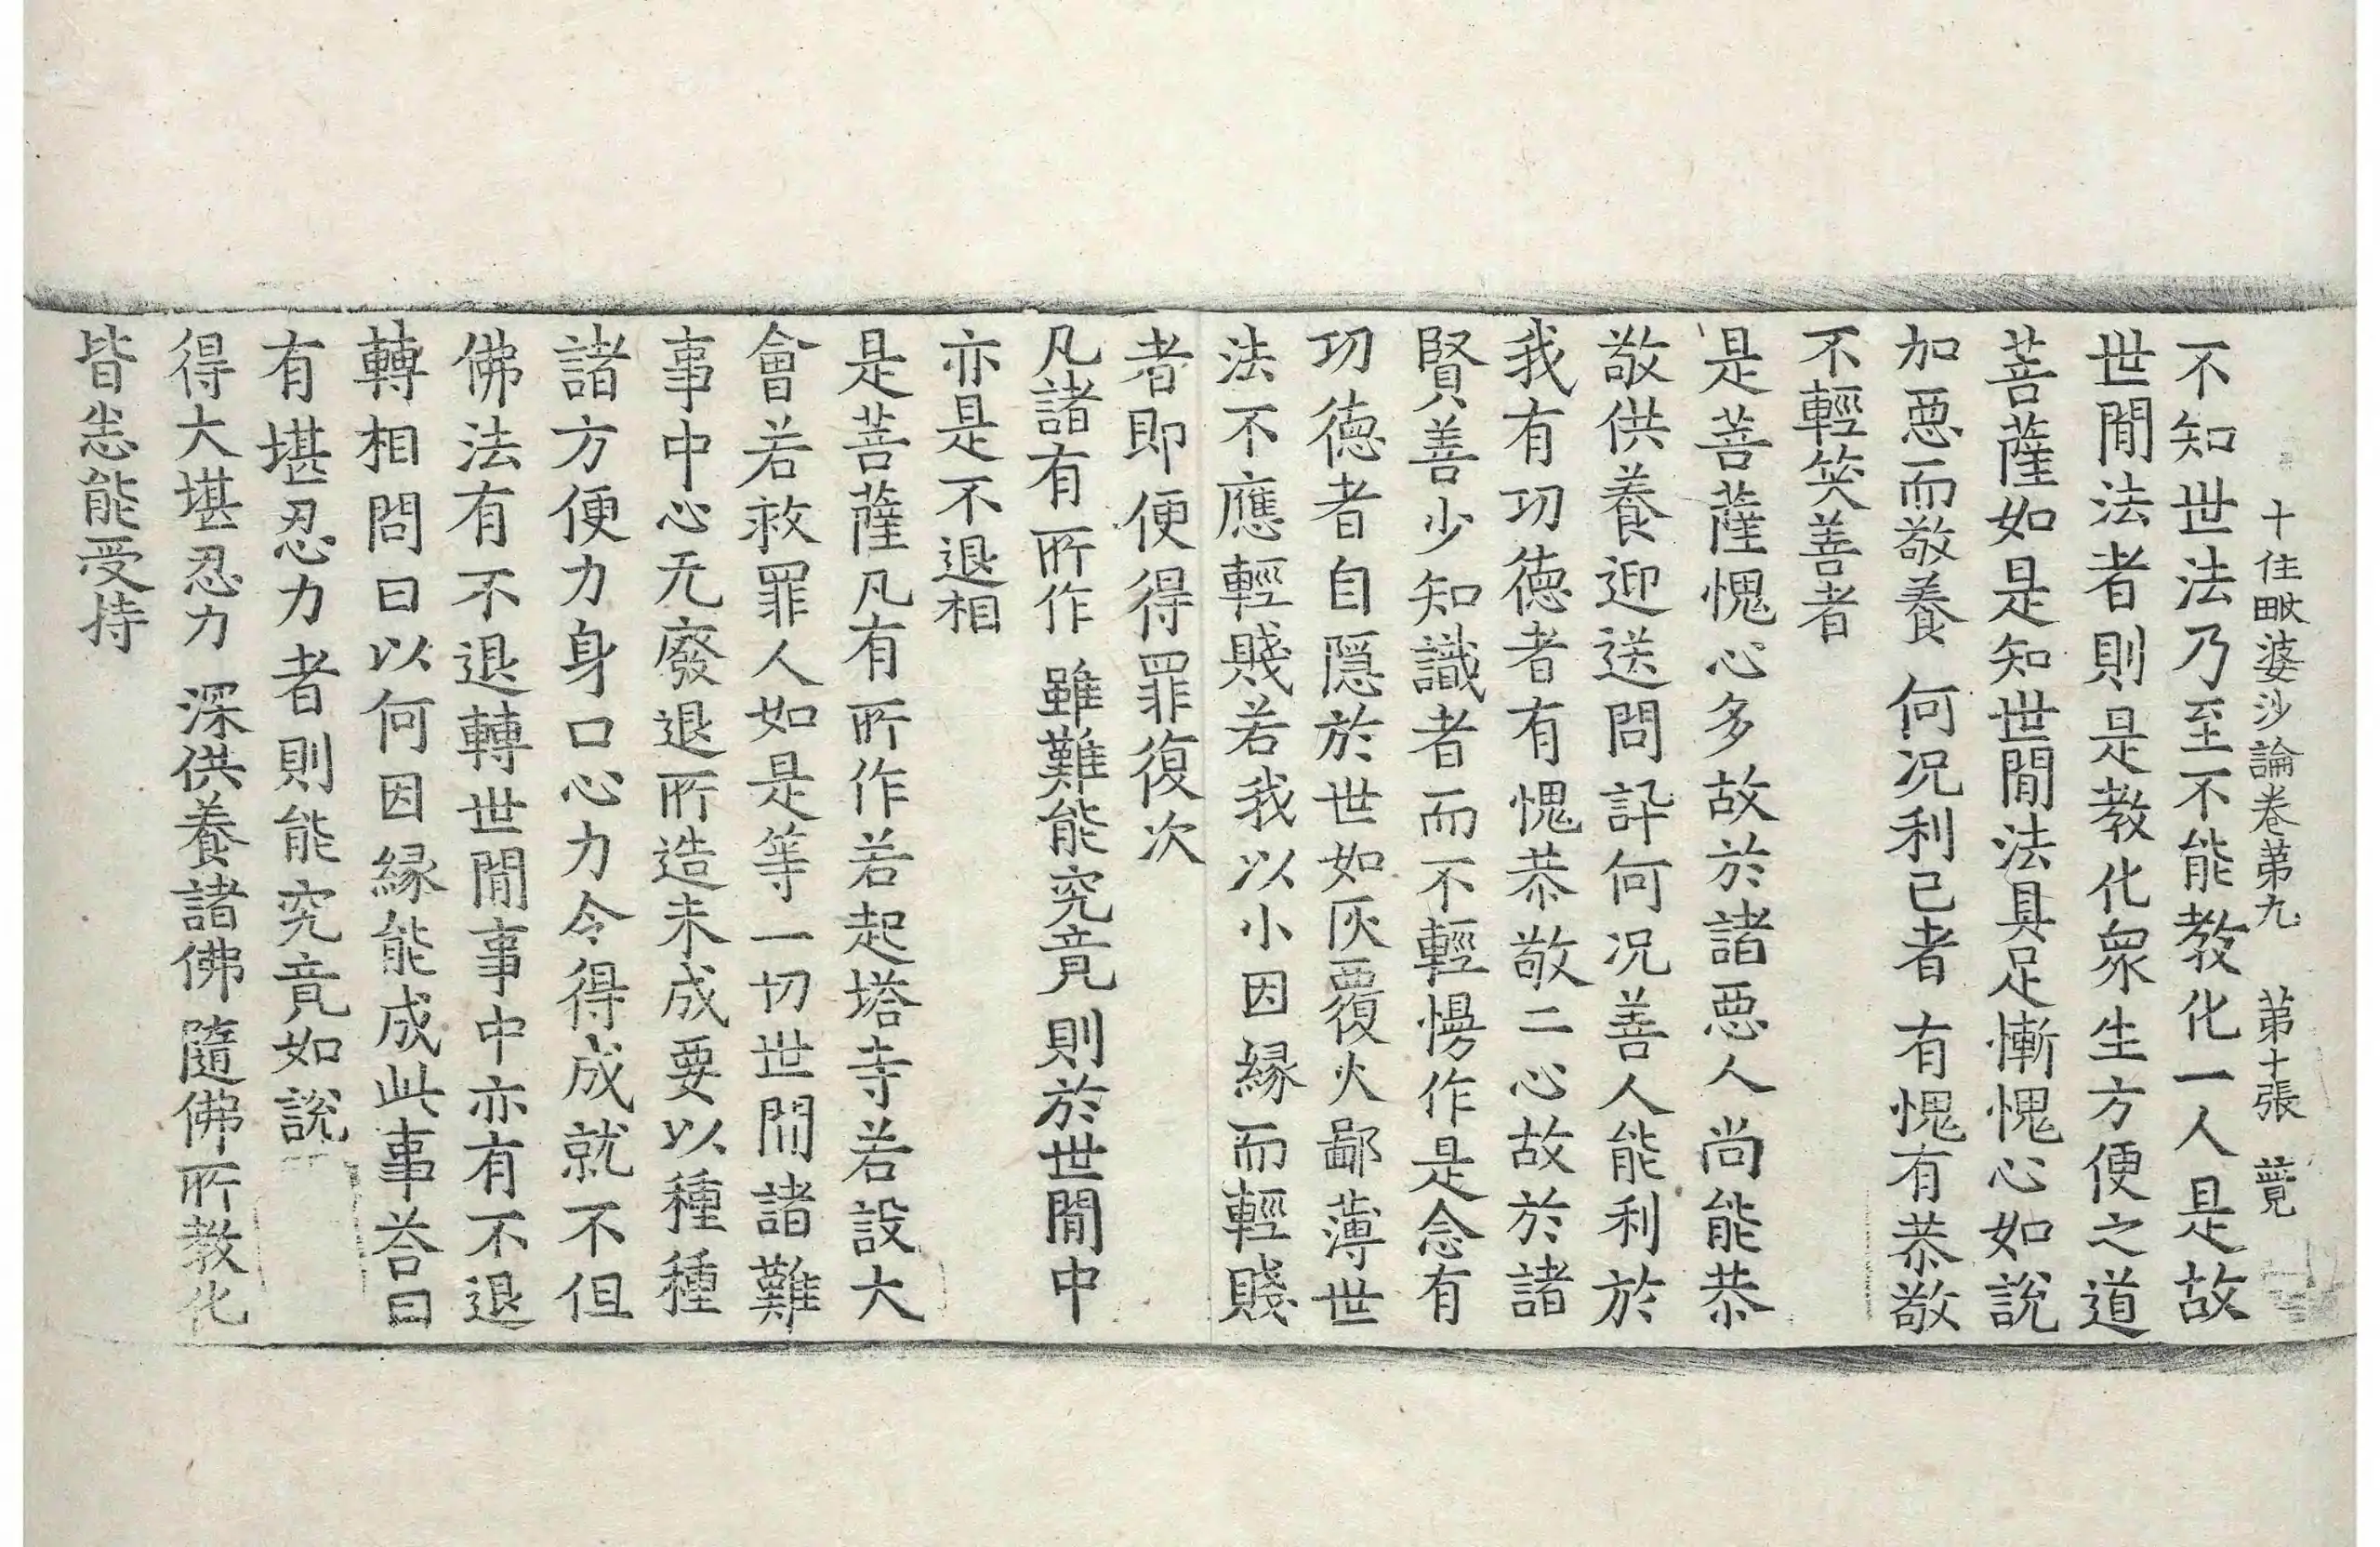 十住毗婆沙論卷苐九 苐十張 藖
不知世法乃至不能教化一人是故
世閒法者則是教化衆生方便之道
菩薩如是知世閒法具足慚愧心如說
加惡而敬養 何况利已者 有愧有恭敬
不輕笑善者
是菩薩愧心多故於諸惡人尚能恭
敬供養迎送問訊何况善人能利於
我有功德者有愧恭敬二心故於諸
賢善少知識者而不輕慢作是念有
功德者自隱於世如灰覆火鄙薄世
法不應輕賤若我以小因緣而輕賤
者即便得罪復次
凡諸有所作 雖難能究竟 則於世閒中
亦是不退相
是菩薩凡有所作若起塔寺若設大
會若救罪人如是等一切世閒諸難
事中心无廢退所造未成要以種種
諸方便力身口心力令得成就不但
佛法有不退轉世閒事中亦有不退
轉相問曰以何因緣能成此事荅曰
有堪忍力者則能究竟如說
得大堪忍力 深供養諸佛 隨佛所教化
皆悉能受持